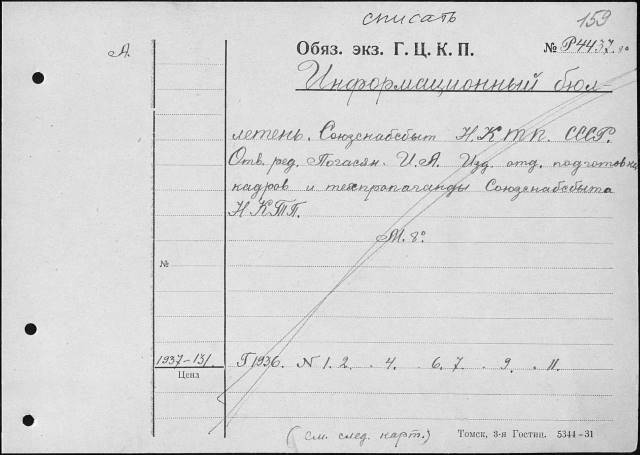 списать
159
А.
Обяз. экз. Г. Ц. К. П.
№ Р4437.
Информационный бюл
летень. Союзснабсбыт Н.К.Т.П. СССР.
Отв. ред. Погасян. И.А. Изд. отд. подготовки
кадров и техпропаганды Союзснабсбыта
Н.К.Т.П.
М. 8°
№
1937-131.
Г1936. N 1. 2. . 4. . 6. 7. . 9. . 11.
Цена
(см. след. карт.)
Томск, 3-я Гостип. 5344-31